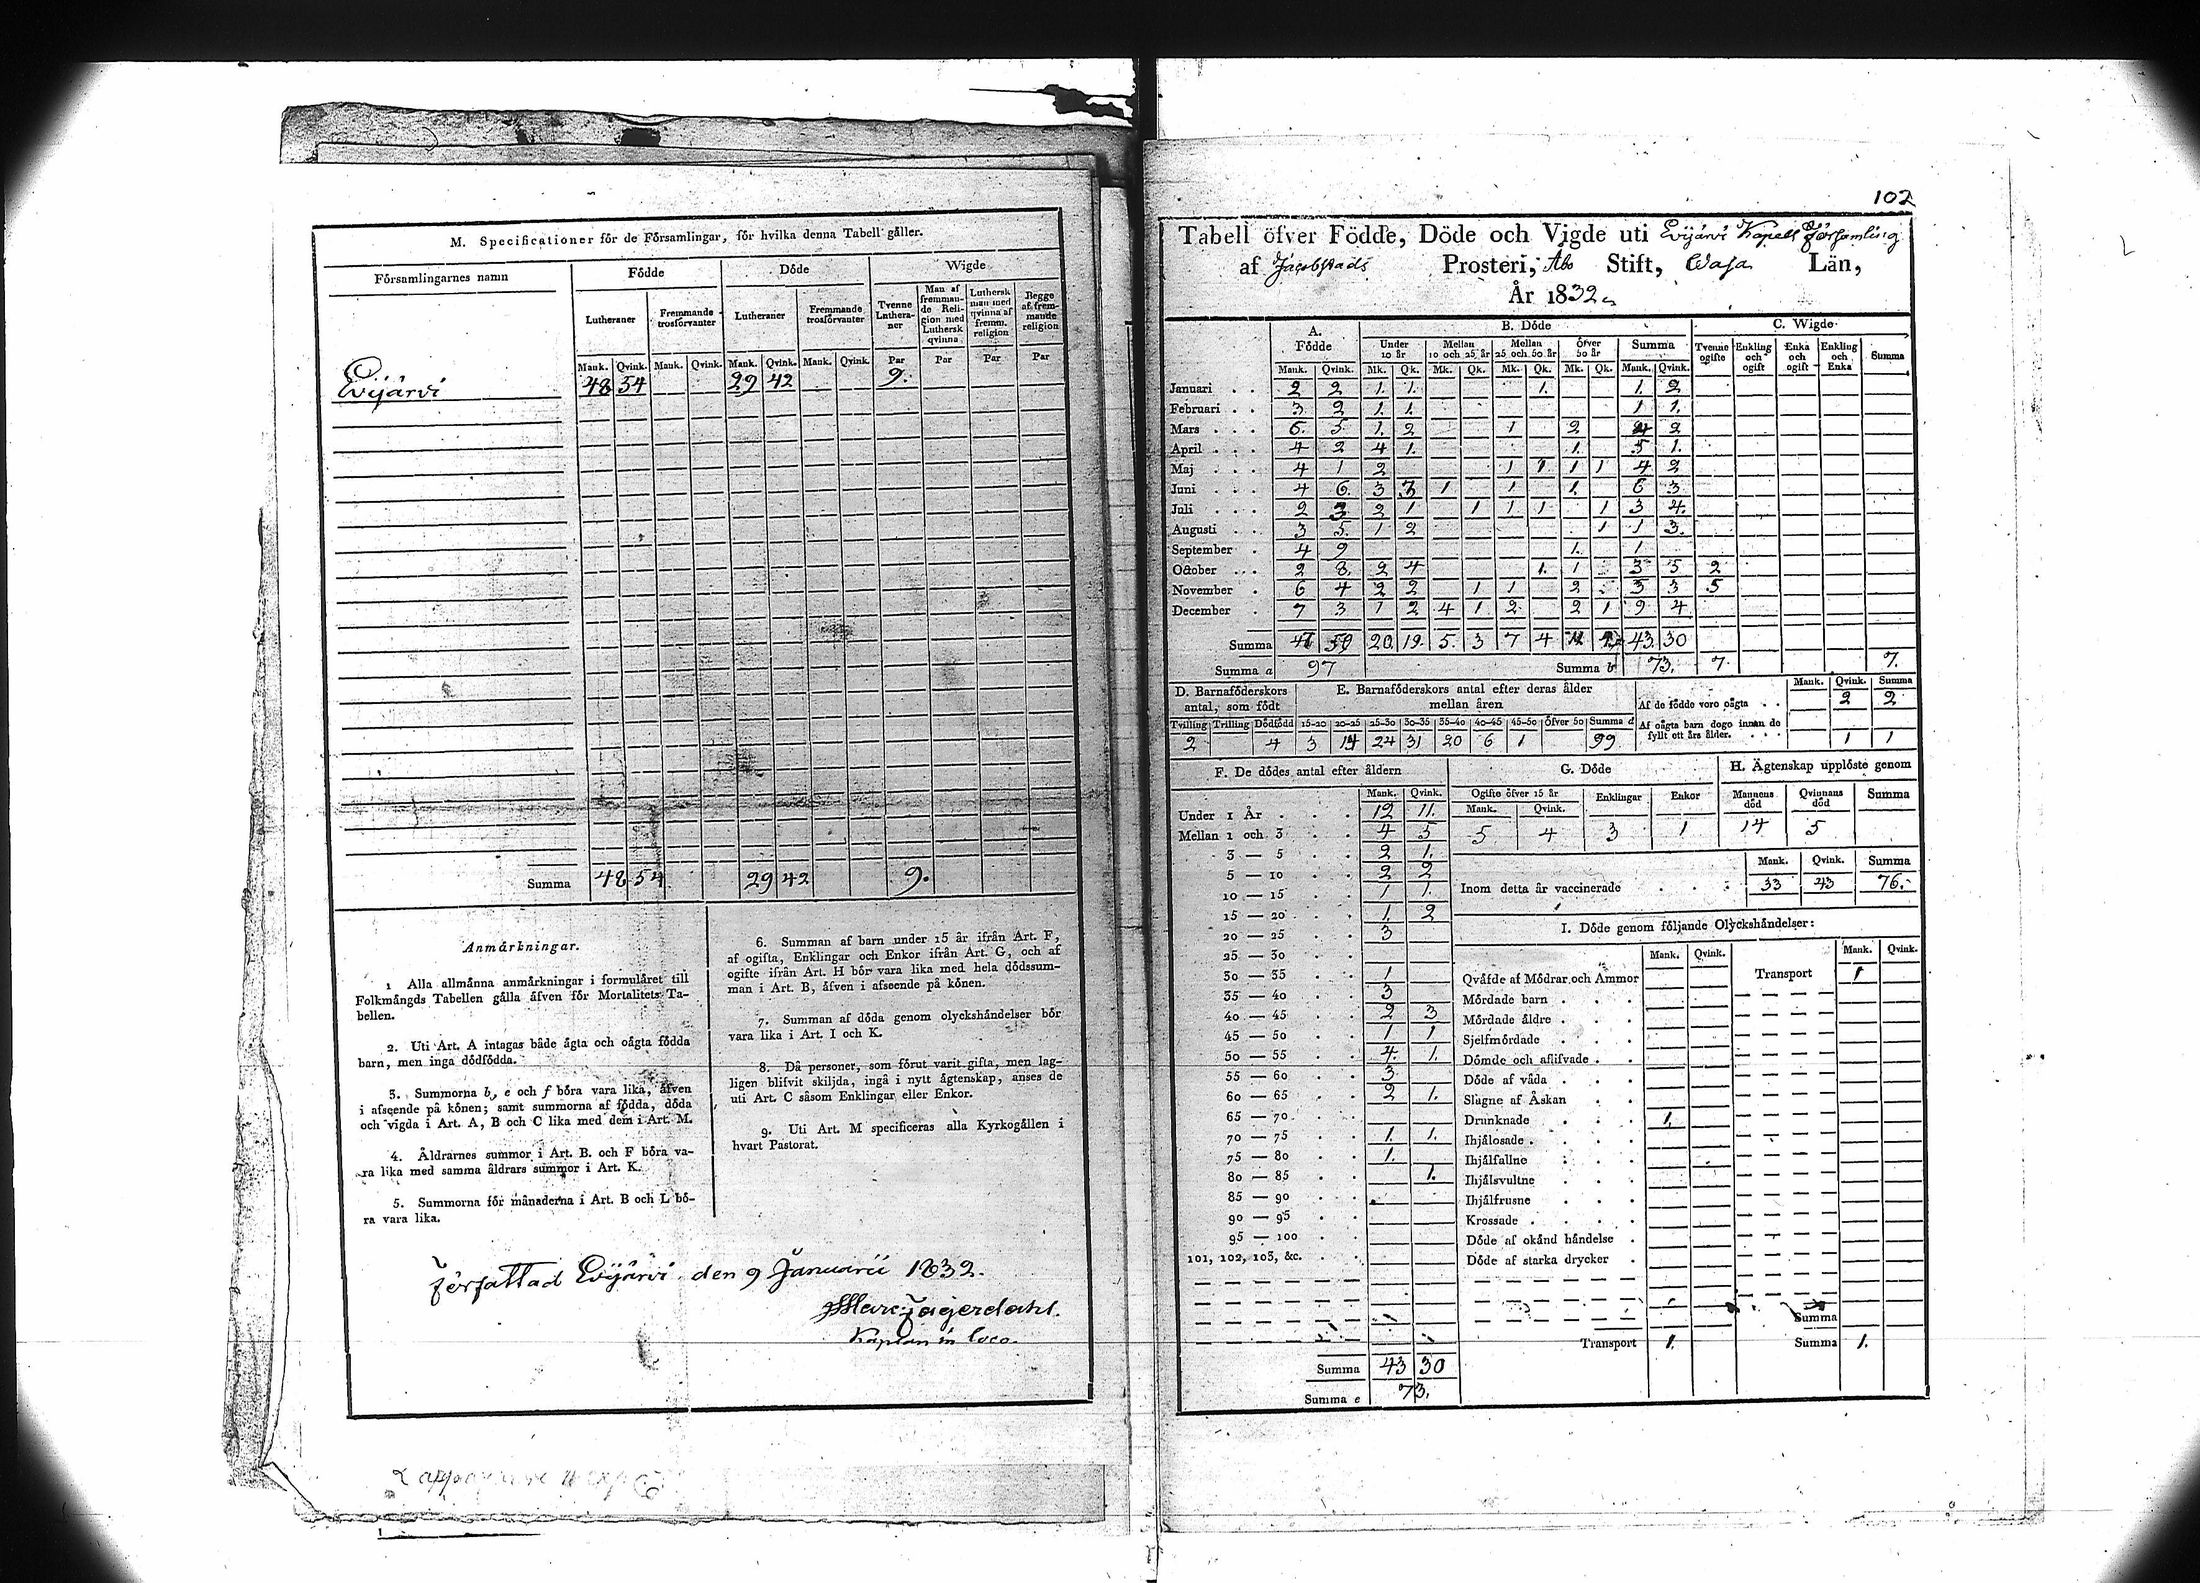 M. Specificationer för de Församlingar, för hvilka denna Tabell gäller.
Församlingarnes namn Födde Döde Wigde
Lutheraner Fremmande trosförvanter Lutheraner Fremmande trosförvanter Tvenne Lutheraner Man af fremmande Religion med Luthersk qvinna Luthersk man med qvinna af fremm. religion Begge af fremmande religion
Mank. Qvink. Mank. Qvink. Mank. Qvink. Mank. Qvink. Par Par Par Par
Evijärvi 48 54 29 42 9.
Summa 48 54 29 42 9.
Anmärkningar.
1 Alla allmänna anmärkningar i formuläret till
Folkmängds Tabellen gälla äfven för Mortalitets Ta-
bellen.
2. Uti Art. A intagas både ägta och oägta födda
barn, men inga dödfödda.
3. Summorna b, e och f böra vara lika, äfven
i afseende på könen; samt summorna af födda, döda
och vigda i Art. A, B och C lika med dem i Art. M.
4. Åldrarnes summor i Art. B. och F böra va-
ra lika med samma åldrars summor i Art. K.
5. Summorna för månaderna i Art. B och L bö-
ra vara lika.
6. Summan af barn under 15 år ifrån Art. F,
af ogifta, Enklingar och Enkor ifrån Art. G, och af
ogifte ifrån Art. H bör vara lika med hela dödssum-
man i Art. B, äfven i afseende på könen.
7. Summan af döda genom olyckshändelser bör
vara lika i Art. I och K.
8. Då personer, som förut varit gifta, men lag-
ligen blifvit skiljda, ingå i nytt ägtenskap, anses de
uti Art. C såsom Enklingar eller Enkor.
9. Uti Art. M specificeras alla Kyrkogällen i
hvart Pastorat.
Författad Evijärvi den 9 Januarii 1832.
Kaplan in loco.
102
Tabell öfver Födde, Döde och Vigde uti Evijärvi Kapell Församling
af Jacobstads Prosteri, Åbo Stift, Wasa Län,
År 1832
A. Födde B. Döde C. Wigde
Under 10 år Mellan 10 och 25 år Mellan 25 och 50 år Öfver 50 år Summa Tvenne ogifte Enkling och ogift Enka och ogift Enkling och Enka Summa
Mank. Qvink. Mk. Qk. Mk. Qk. Mk. Qk. Mk. Qk. Mank. Qvink.
Januari 2 2 1. 1. 1. 1. 2
Februari 3 2 1. 1. 1 1.
Mars 6. 5 1. 2 1 2 4 2
April 4 2 4 1. 1. 5 1.
Maj 4 1 2 1 1 1 1 4 2
Juni 4 6. 3 3 1 1 1. 6 3
Juli 2 3 2 1 1 1 1 1 3 4.
Augusti 3 5. 1 2 1 1 3.
September 4 9 1. 1
October 2 8. 2 4 1. 1 3 5 2
November 6 4 2 2 1 1 2 5 3 5
December 7 3 1 2 4 1 2 2 1 9 4
Summa 47 50 20 19. 5. 3 7 4 11 4 43. 30
Summa a 97 Summa b 73. 7. 7.
D. Barnaföderskors antal, som födt E. Barnaföderskors antal efter deras ålder mellan åren Mank. Qvink. Summa
Af de födde voro oägta 2 2
Tvilling Trilling Dödfödd 15-20 20-25 25-30 30-35 35-40 40-45 45-50 Öfver 50 Summa d
Af oägta barn dogo innan de fyllt ett års ålder. 1 1
2 4 3 14 24 31 20 6 1 99
F. De dödes antal efter åldern
Mank. Qvink.
Under 1 År 12 11.
Mellan 1 och 3 4 5
3 — 5 2 1.
5 — 10 2 2
10 — 15 1 1.
15 — 20 1. 2
20 — 25 3
25 — 30
30 — 35 1
35 — 40 3
40 — 45 2 3
45 — 50 1 1
50 — 55 4. 1.
55 — 60 3
60 — 65 2 1.
65 — 70
70 — 75 1. 1.
75 — 80 1.
80 — 85 1.
85 — 90
90 — 95
95 — 100
101, 102, 103, &c.
Summa 43 30
Summa e 73.
G. Döde H. Ägtenskap upplöste genom
Ogifte öfver 15 år Enklingar Enkor Mannens död Qvinnans död Summa
Mank. Qvink.
5 4 3 1 14 5
Mank. Qvink. Summa
Inom detta år vaccinerade 33 43 76.
I. Döde genom följande Olyckshändelser:
Mank. Qvink. Mank. Qvink.
Qväfde af Mödrar och Ammor Transport 1
Mördade barn
Mördade äldre
Sjelfmördade
Dömde och aflifvade
Döde af våda
Slagne af Åskan
Drunknade 1.
Ihjälosade
Ihjälfallne
Ihjälsvultne
Ihjälfrusne
Krossade
Döde af okänd händelse
Döde af starka drycker
Summa
Transport 1. Summa 1.